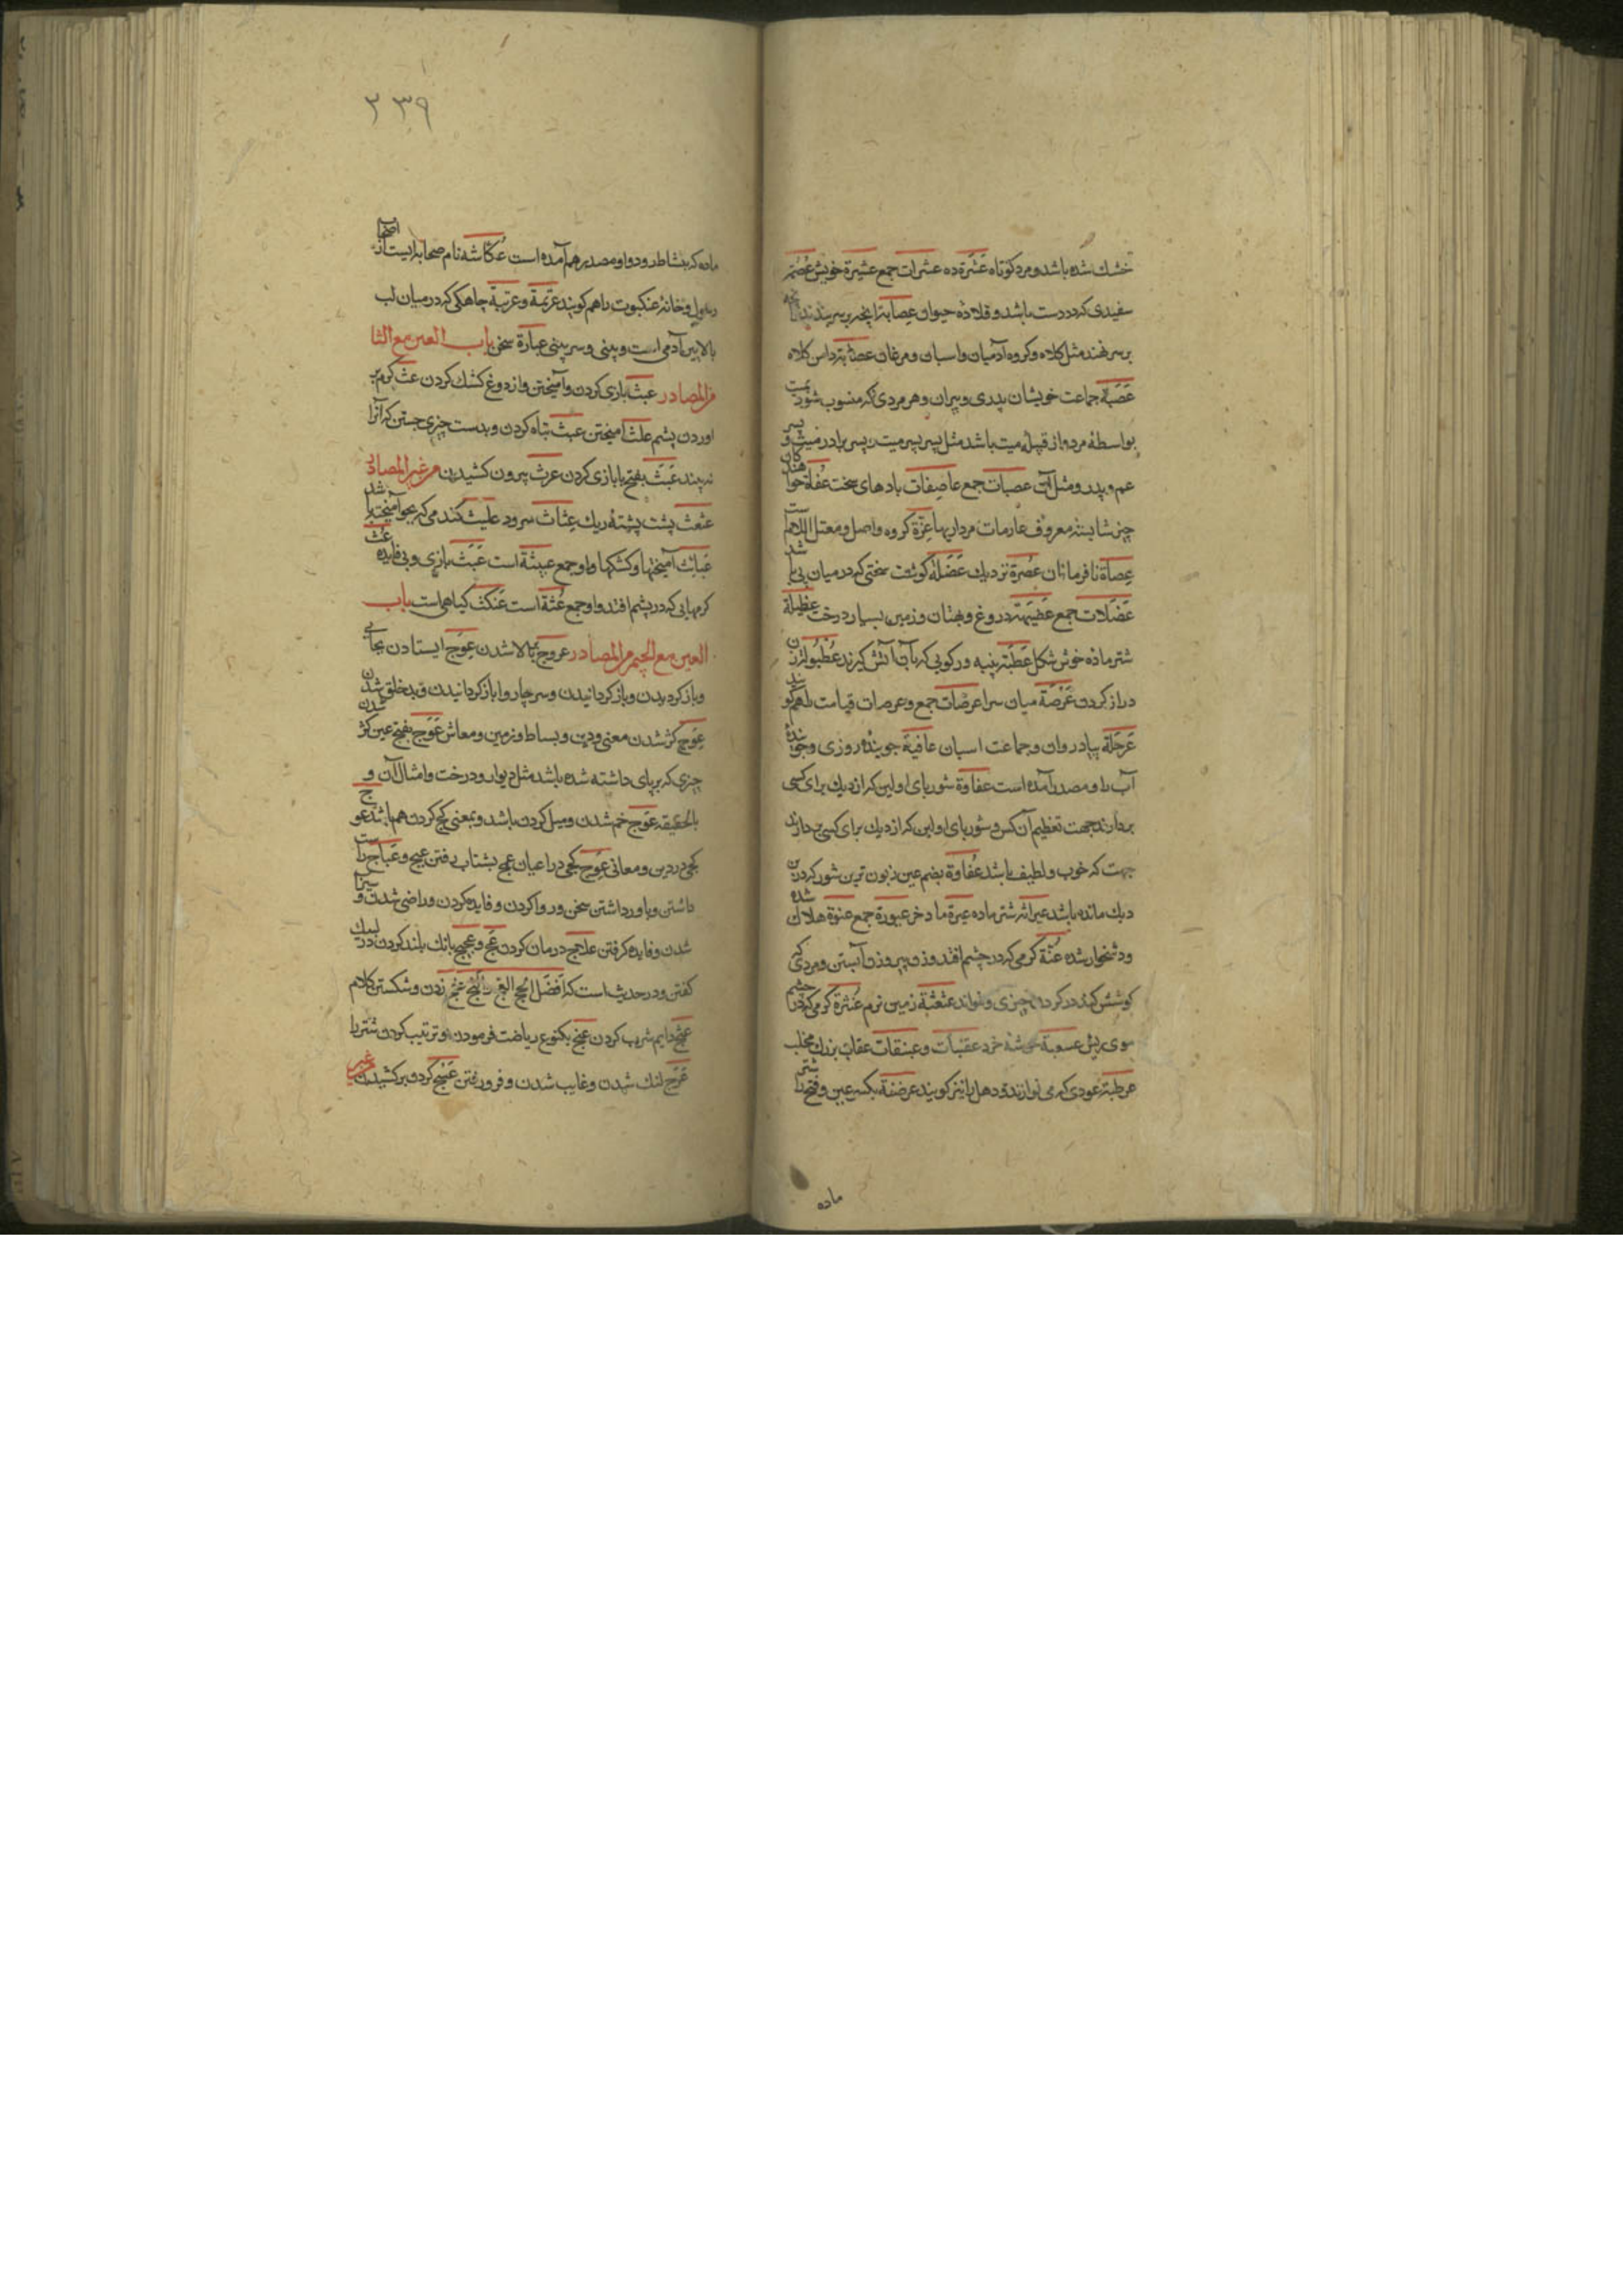 خشك شده باشد و مرد كوتاه عَشَرة ده عشرات جمع عشيرة خويش عُصْم
سفيدى كه در دست باشد و قلادۀ حيوان عِصابة آنچه بر سر بندند تا
بر سر نهند مثل كلاه و كروه آدميان و اسبان و مرغان عصابة دامن كلاه
عَصَبة جماعت خويشان پدرى و پيران و هر مردى كه منسوب شود بميت
بواسطۀ مرد و از قبيلۀ ميت باشد مثل پسر پسر ميت و پسر برادر ميت و پسر
عم و پدر و مثل آن عصبات جمع عاصفات بادهاى سخت عُفاة خواهندكان
چيز شايسته معروف عارمات مرداريها عِزْة كروه و اصل و معتل اللام است
عِصاة نافرمانان عُصْرة نزديك عَضَلة كوشت سختى كه در ميان پى باشد
عَضَلات جمع عَضيهة دروغ و بهتان و زمين بسيار درخت عظيلة
شتر مادۀ خوش شكل عُطْبة پنبه و ركويى كه بآن آتش كيرند عُظبولة زن
دراز كردن عَرْصة ميان سرا عرصات جمع و عرصات قيامت را هم كويند
عَرْجَلة پيادروان و جماعت اسبان عافية جويندۀ روزى و جويندۀ
آب را و مصدر آمده است عفاوة شورباى اولين كه از ديك براى كسى
بردارند جهت تعظيم آن كس و شورباى اولين كه از ديك براى كسى بردارند
جهت كه خوب و لطيف باشد عُفاوة بضم عين زبون ترين شور كردن
ديك مانده باشد عيرانة شتر ماده عيرة مادخر عيورة جمع عنوة هلاك شده
و دشخوار شده عُثّة كرمى كه در چشم افتد و زن پير و زن آبستن و مردى كه
كوشش كند در كردن چيزى و نتواند عثعثة زمين نرم عُثرة كرمى كه در چشم
موى ريش عسوبة خوشۀ خرد عقنبات و عبنقات عقاب بزرك مخلب
عرطبة عودى كه مى نوازند و دهل را نيز كويند عرضنة بكسر عين و فتح را شتر
ماده
٢٣٩
ماده كه بنشاط رود و او مصدر هم آمده است عُكّاشة نام صحابه ايست از اصحاب
رسول و خانۀ عنكبوت را هم كويند عَرْتمة و عرتبة چاهكى كه در ميان لب
بالايين آدمى است و بينى و سر بينى عبارة سخن باب العين مع الثا
من المصادر عبث بازى كردن و آميختن و از دوغ كشك كردن عث كرم بر
اوردن پشم علث آميختن عبث تباه كردن و بدست چيزى جستن كه آنرا
نبينند عَبَث بفتح با بازى كردن عرث بيرون كشيدن من غير المصادر
عثعث پشت پشتۀ ريك عِثاث سرود عليث كندمى كه بجو آميخته باشد
عَبائث آميختها و كشكها و او جمع عبيثة است عَبَث بازى و بى فايده عُث
كرمهايى كه در پشم افتد و او جمع عُثّة است عَنكث كياهى است باب
العين مع الجيم من المصادر عروج ببالا شدن عِوَج ايستادن بجايى
و باز كرديدن و باز كردانيدن و سر چاروا باز كردانيدن و بدخلق شدن
عِوَج كژ شدن معنى و دين و بساط و زمين و معاش عَوَج بفتح عين كژ شدن
چيزى كه بر پاى داشته شده باشد مثل ديوار و درخت و امثال آن و
بالحقيقه عَوَج خم شدن و ميل كردن باشد و بمعنى كج كردن هم باشد عوج
كجى در دين و معانى عِوَج كجى در اعيان عج بشتاب رفتن عيج و عَياج راست
داشتن و باور داشتن سخن و روا كردن و فايده كردن و راضى شدن و سيراب
شدن و فايده كرفتن علاج درمان كردن عَج و عجيج بانك بلند كردن در لبيك
كفتن و در حديث است كه اَفضل الحج العج و الثج عثج زدن و شكستن كلام
عثج دايم شرب كردن عنج بكنوع رياضت فرمودن و ترتيب كردن شتر را
عَرَج لنك شدن و غايب شدن و فرو رفتن عَنْج كرد و بر كشيدن من غير